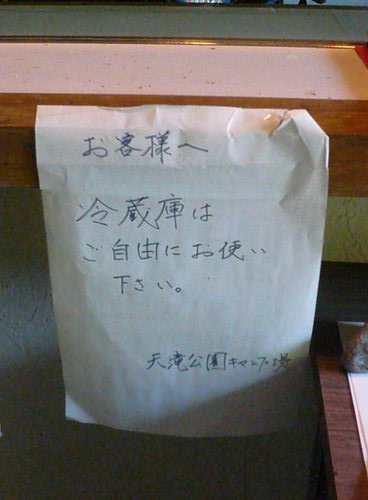 お客様へ
冷蔵庫は
ご自由にお使い
下さい。
天滝公園キャンプ場